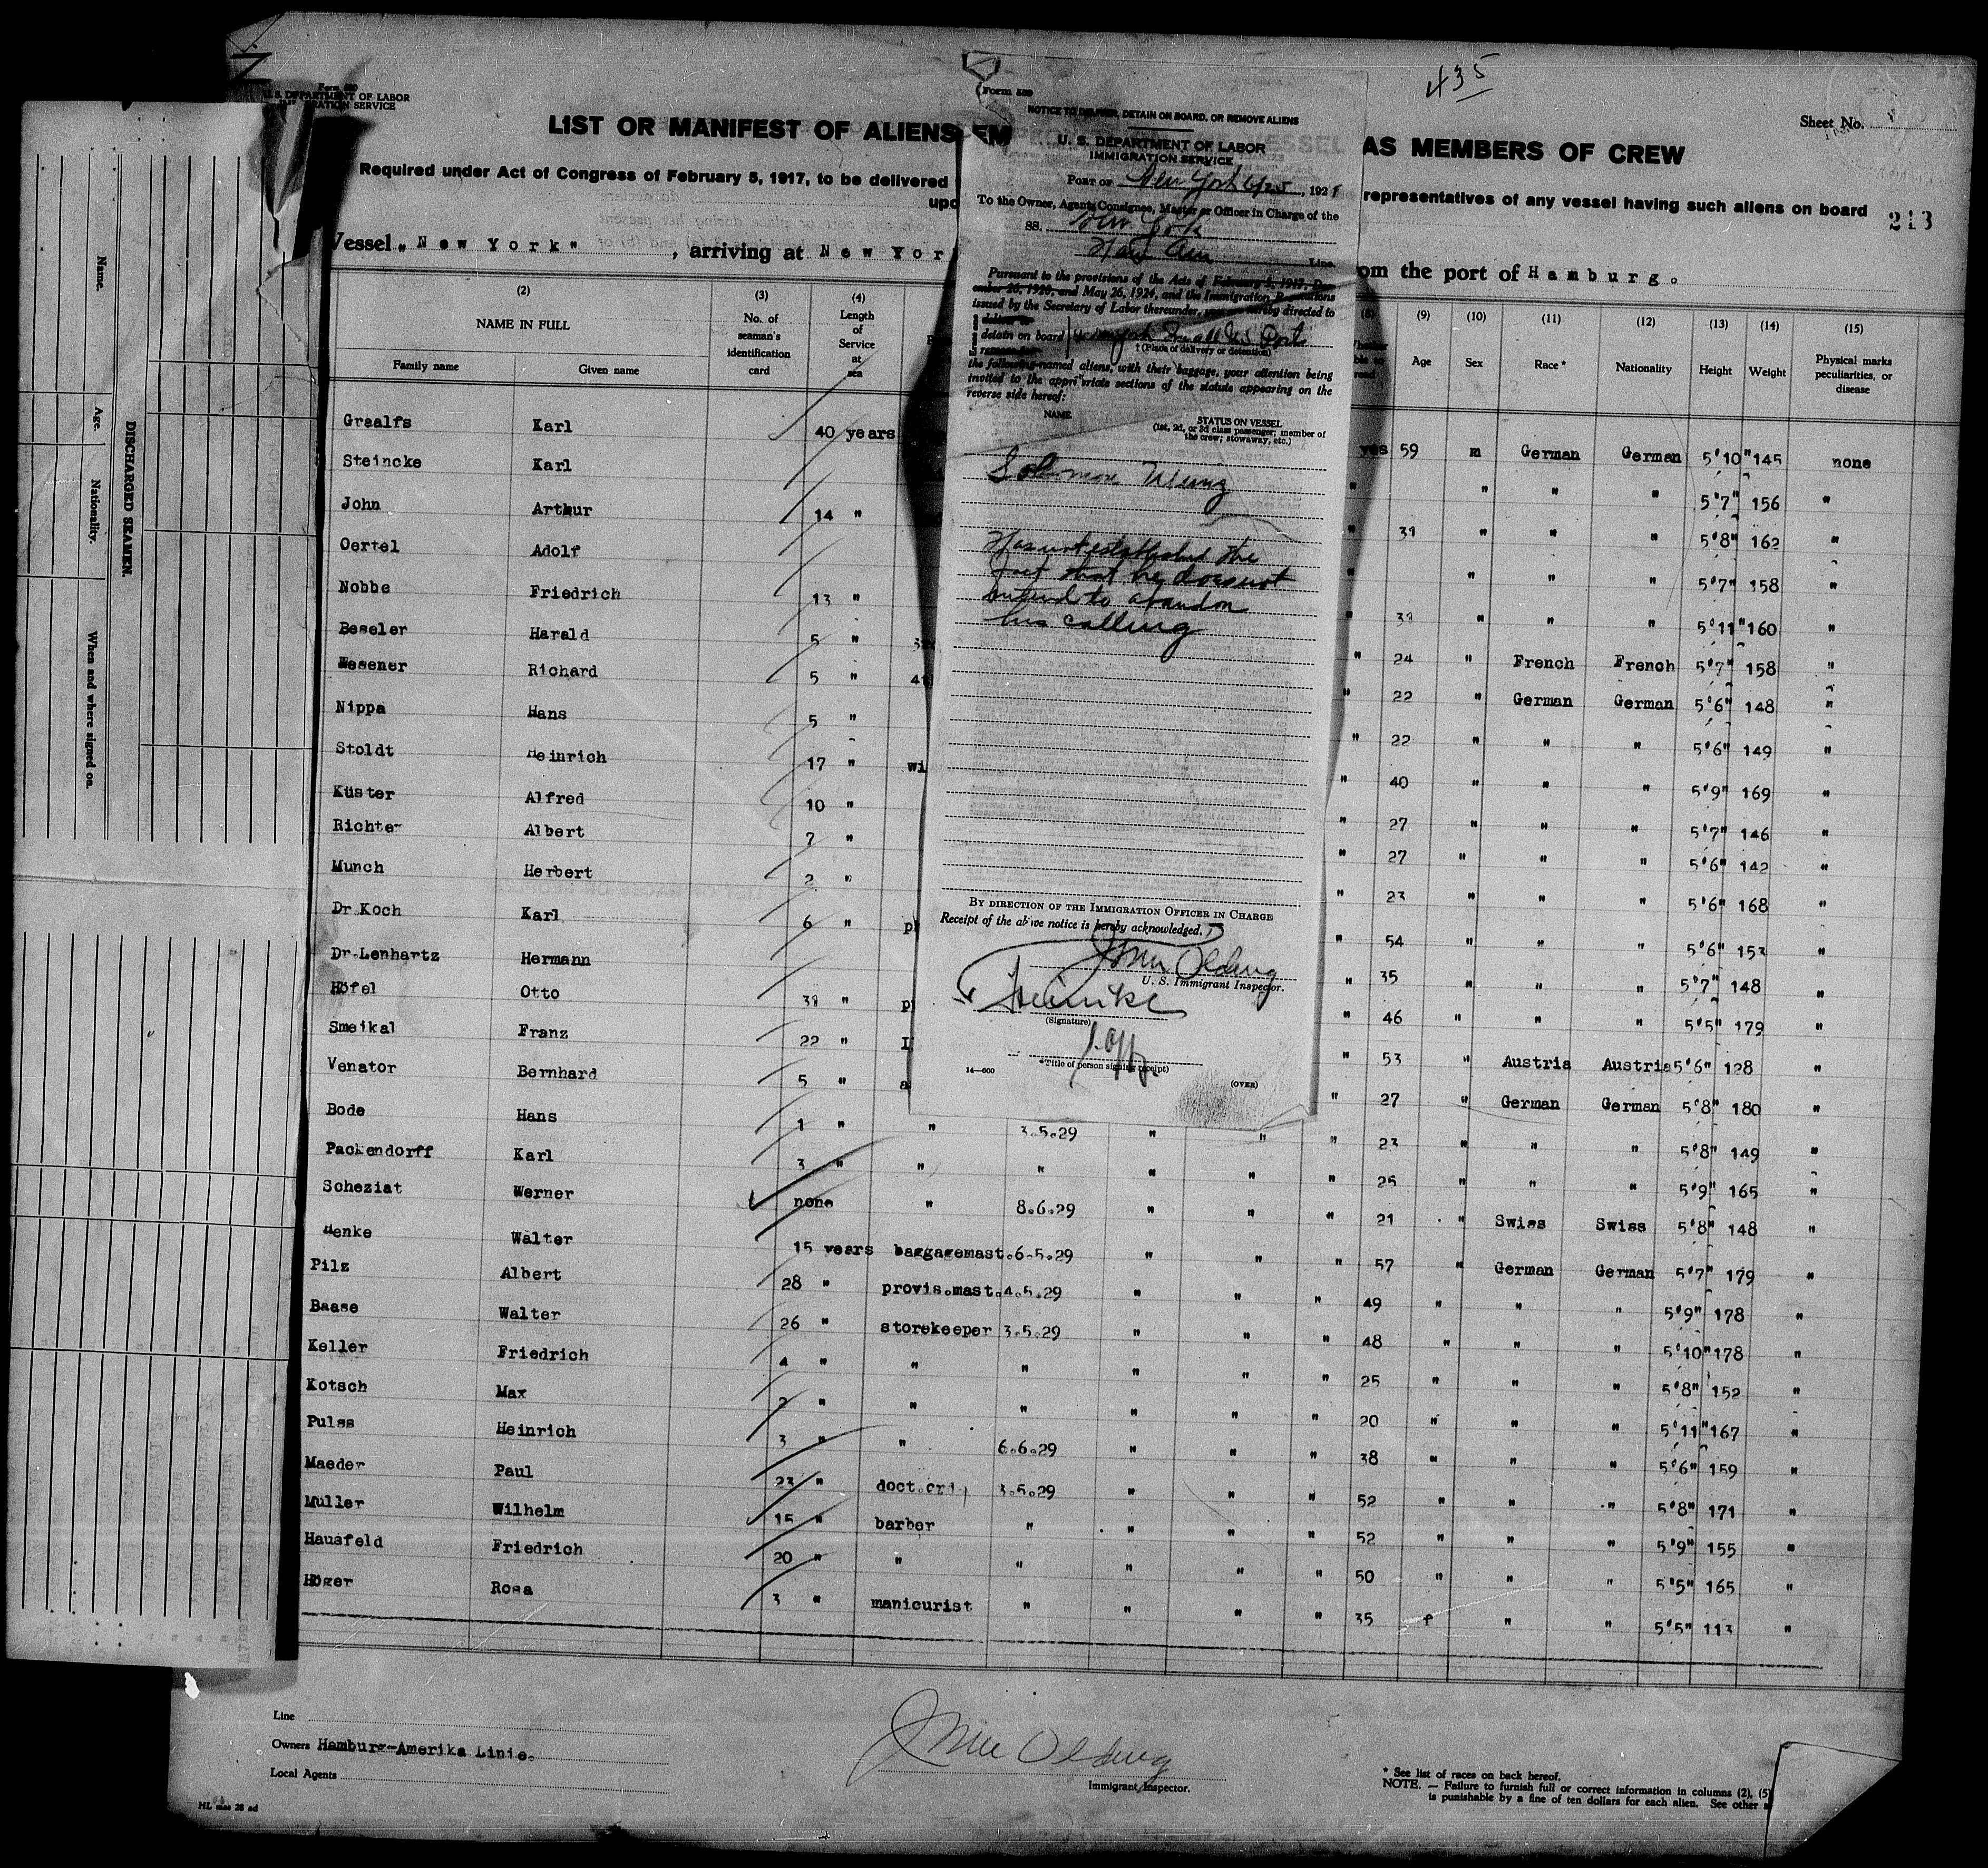 Form 680
U. S. DEPARTMENT OF LABOR
IMMIGRATION SERVICE
435
Sheet No.
LIST OR MANIFEST OF ALIENS EM
AS MEMBERS OF CREW
Required under Act of Congress of February 5, 1917, to be delivered
representatives of any vessel having such aliens on board
upo
213
Vessel „New York", arriving at New Yor
om the port of Hamburg.
(2) (3) (4) (8) (9) (10) (11) (12) (13) (14) (15)
NAME IN FULL
Family name Given name
No. of seaman's identification card
Length of Service at sea
Age Sex Race * Nationality Height Weight Physical marks peculiarities, or disease
Graalfs Karl 40 years yes 59 m German German 5'10" 145 none
Steincke Karl " " " " 5'7" 156 "
John Arthur 14 " " 39 " " " 5'8" 162 "
Oertel Adolf " " " " 5'7" 158 "
Nobbe Friedrich 13 " " " " " 5'11" 160 "
Beseler Harald 5 " " 24 " French French 5'7" 158 "
Wesener Richard 5 " " 22 " German German 5'6" 148 "
Nippa Hans 5 " " 22 " " " 5'6" 149 "
Stoldt Heinrich 17 " wi " 40 " " " 5'9" 169 "
Küster Alfred 10 " " 27 " " " 5'7" 146 "
Richter Albert 7 " " 27 " " " 5'6" 142 "
Munch Herbert 2 " " 23 " " " 5'6" 168 "
Dr Koch Karl 6 " " 54 " " " 5'6" 153 "
Dr-Lenhartz Hermann " 35 " " " 5'7" 148 "
Höfel Otto " " 46 " " " 5'5" 179 "
Smeikal Franz 22 " " 53 " Austria Austria 5'6" 128 "
Venator Bernhard 5 " a " 27 " German German 5'8" 180 "
Bode Hans 1 " " 3.5.29 " " " 23 " " " 5'8" 149 "
Packendorff Karl 3 " " " " " " 25 " " " 5'9" 165 "
Scheziat Werner none " 8.6.29 " " " 21 " Swiss Swiss 5'8" 148 "
Henke Walter 15 years baggagemast. 6.5.29 " " " 57 " German German 5'7" 179 "
Pilz Albert 28 " provis.mast. 4.5.29 " " " 49 " " " 5'9" 178 "
Baase Walter 26 " storekeeper 3.5.29 " " " 48 " " " 5'10" 178 "
Keller Friedrich 4 " " " " " " 25 " " " 5'8" 152 "
Kotsch Max 2 " " " " " " 20 " " " 5'11" 167 "
Pulss Heinrich 3 " " 6.6.29 " " " 38 " " " 5'6" 159 "
Maeder Paul 23 " 3.5.29 " " " 52 " " " 5'8" 171 "
Müller Wilhelm 15 " barber " " " " 52 " " " 5'9" 155 "
Hausfeld Friedrich 20 " " " " " " 50 " " " 5'5" 165 "
Höger Rosa 3 " manicurist " " " " 35 f " " 5'5" 113 "
Line
Owners Hamburg-Amerika Linie.
Local Agents
HL mas 28 ad
John Olding
Immigrant Inspector.
* See list of races on back hereof.
NOTE. — Failure to furnish full or correct information in columns (2), (5)
is punishable by a fine of ten dollars for each alien. See other
Form 689
NOTICE TO DELIVER, DETAIN ON BOARD, OR REMOVE ALIENS
U. S. DEPARTMENT OF LABOR
IMMIGRATION SERVICE
PORT OF New York 6/25, 1929
To the Owner, Agent, Consignee, Master or Officer in Charge of the
SS. New York
Ham Am Line.
Pursuant to the provisions of the Acts of February 5, 1917, Dec-
ember 26, 1920, and May 26, 1924, and the Immigration Regulations
issued by the Secretary of Labor thereunder, you are hereby directed to
deliver to
detain on board
remove to
† (Place of delivery or detention)
the following-named aliens, with their baggage, your attention being
invited to the appropriate sections of the statute appearing on the
reverse side hereof:
NAME
STATUS ON VESSEL
(1st, 2d, or 3d class passenger; member of
the crew; stowaway, etc.)
Has not established the
fact that he does not
intend to abandon
his calling
BY DIRECTION OF THE IMMIGRATION OFFICER IN CHARGE
Receipt of the above notice is hereby acknowledged.
John Olding
U. S. Immigrant Inspector.
(Signature)
1. Off.
(Title of person signing receipt)
14—600
(OVER)
Name.
Age.
Nationality.
When and where signed on.
DISCHARGED SEAMEN.